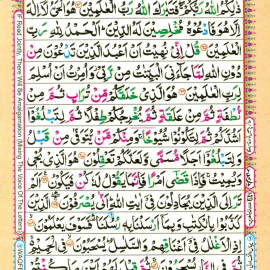 ذٰلِكُمُ اللّٰهُ رَبُّكُمْ فَتَبٰرَكَ اللّٰهُ رَبُّ الْعٰلَمِیْنَ هُوَ الْحَیُّ لَاۤ اِلٰهَ
اِلَّا هُوَ فَادْعُوْهُ مُخْلِصِیْنَ لَهُ الدِّیْنَ اَلْحَمْدُ لِلّٰهِ رَبِّ
الْعٰلَمِیْنَ قُلْ اِنِّیْ نُهِیْتُ اَنْ اَعْبُدَ الَّذِیْنَ تَدْعُوْنَ مِنْ
دُوْنِ اللّٰهِ لَمَّا جَآءَنِیَ الْبَیِّنٰتُ مِنْ رَّبِّیْ وَاُمِرْتُ اَنْ اُسْلِمَ
لِرَبِّ الْعٰلَمِیْنَ هُوَ الَّذِیْ خَلَقَكُمْ مِّنْ تُرَابٍ ثُمَّ مِنْ
نُّطْفَةٍ ثُمَّ مِنْ عَلَقَةٍ ثُمَّ یُخْرِجُكُمْ طِفْلًا ثُمَّ لِتَبْلُغُوْۤا
اَشُدَّكُمْ ثُمَّ لِتَكُوْنُوْا شُیُوْخًا وَمِنْكُمْ مَّنْ یُّتَوَفّٰی مِنْ قَبْلُ
وَلِتَبْلُغُوْۤا اَجَلًا مُّسَمًّی وَّلَعَلَّكُمْ تَعْقِلُوْنَ هُوَ الَّذِیْ یُحْیٖ
وَیُمِیْتُ فَاِذَا قَضٰۤی اَمْرًا فَاِنَّمَا یَقُوْلُ لَهٗ كُنْ فَیَكُوْنُ اَلَمْ
تَرَ اِلَی الَّذِیْنَ یُجَادِلُوْنَ فِیْۤ اٰیٰتِ اللّٰهِ اَنّٰی یُصْرَفُوْنَ الَّذِیْنَ
كَذَّبُوْا بِالْكِتٰبِ وَبِمَاۤ اَرْسَلْنَا بِهٖ رُسُلَنَا فَسَوْفَ یَعْلَمُوْنَ
اِذِ الْاَغْلٰلُ فِیْۤ اَعْنَاقِهِمْ وَالسَّلٰسِلُ یُسْحَبُوْنَ فِی الْحَمِیْمِ
(If Read Jointly, There Will Be Amalgamation (Mixing The Voice Of The Letters)